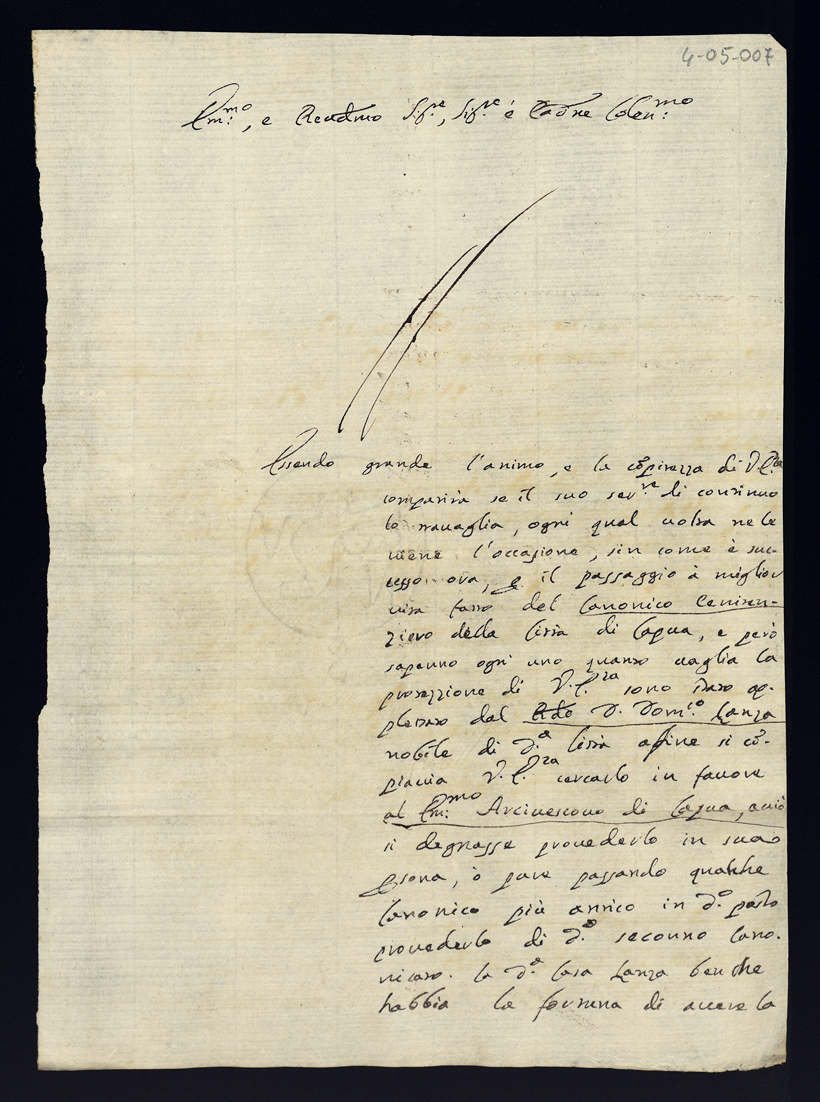 4-05-007
Em:mo, e Reudmo Sig.re, Sig.re é Padrne Colen:mo
Essendo grande l'animo, e la cõpitezza di V.E.za
compatirà se il suo ser.re di continuo
lo trauaglia, ogni qual uolta ne le
uiene l'occasione, sin come è suc-
cesso ora, p il passaggio à miglior
uita fatto del Canonico Peniten-
ziero della Città di Capua, e però
sapenno ogni uno quanto uaglia la
protezzione di V.E.za sono stato op-
pletato dal Rdo D. Dom.co Lanza
nobile di d.a Città affine si cõ-
piaccia V.E.za cercarlo in fauore
al Em:mo Arciuescouo di Capua, acciò
si degnasse prouederlo in sua
psona, ò pure passando qualche
Canonico più antico in d.o posto
prouederlo di d.o secunno Cano-
nicato. la d.a Casa Lanza benche
habbia la fortuna di auere la